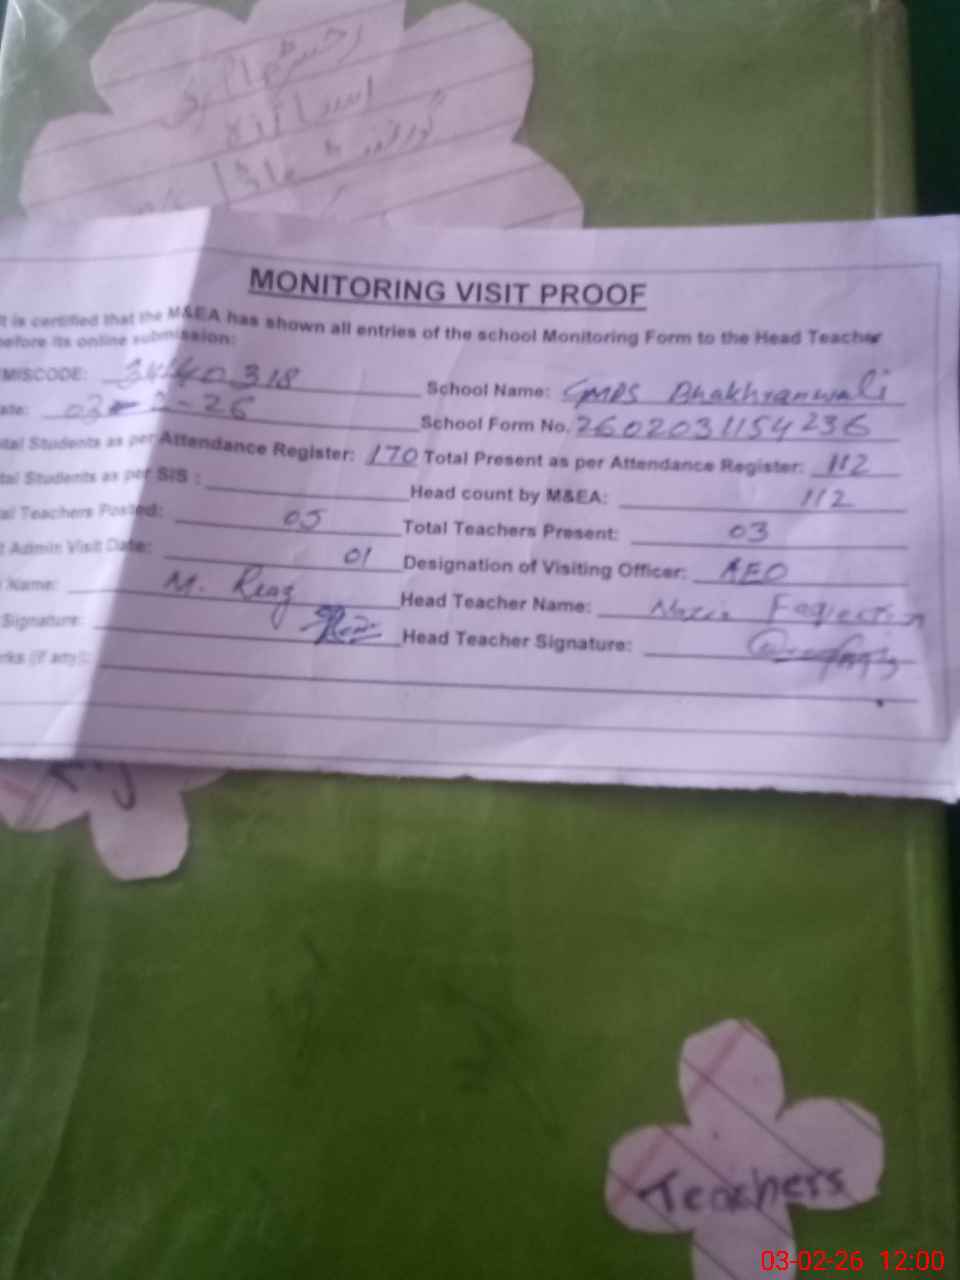 اساتذہ
MONITORING VISIT PROOF
It is certified that the M&EA has shown all entries of the school Monitoring Form to the Head Teacher
before its online submission:
MISCODE: 34440318 School Name: GMPS Bhakhranwali
ate: 03-2-26 School Form No. 2602031154236
tal Students as per Attendance Register: 170 Total Present as per Attendance Register: 112
tal Students as per SIS : Head count by M&EA: 112
al Teachers Posted: 05 Total Teachers Present: 03
t Admin Visit Date: 01 Designation of Visiting Officer: AEO
Name: M. Reaz Head Teacher Name:
Signature: Head Teacher Signature:
rks (if any):
Teachers
03-02-26 12:00